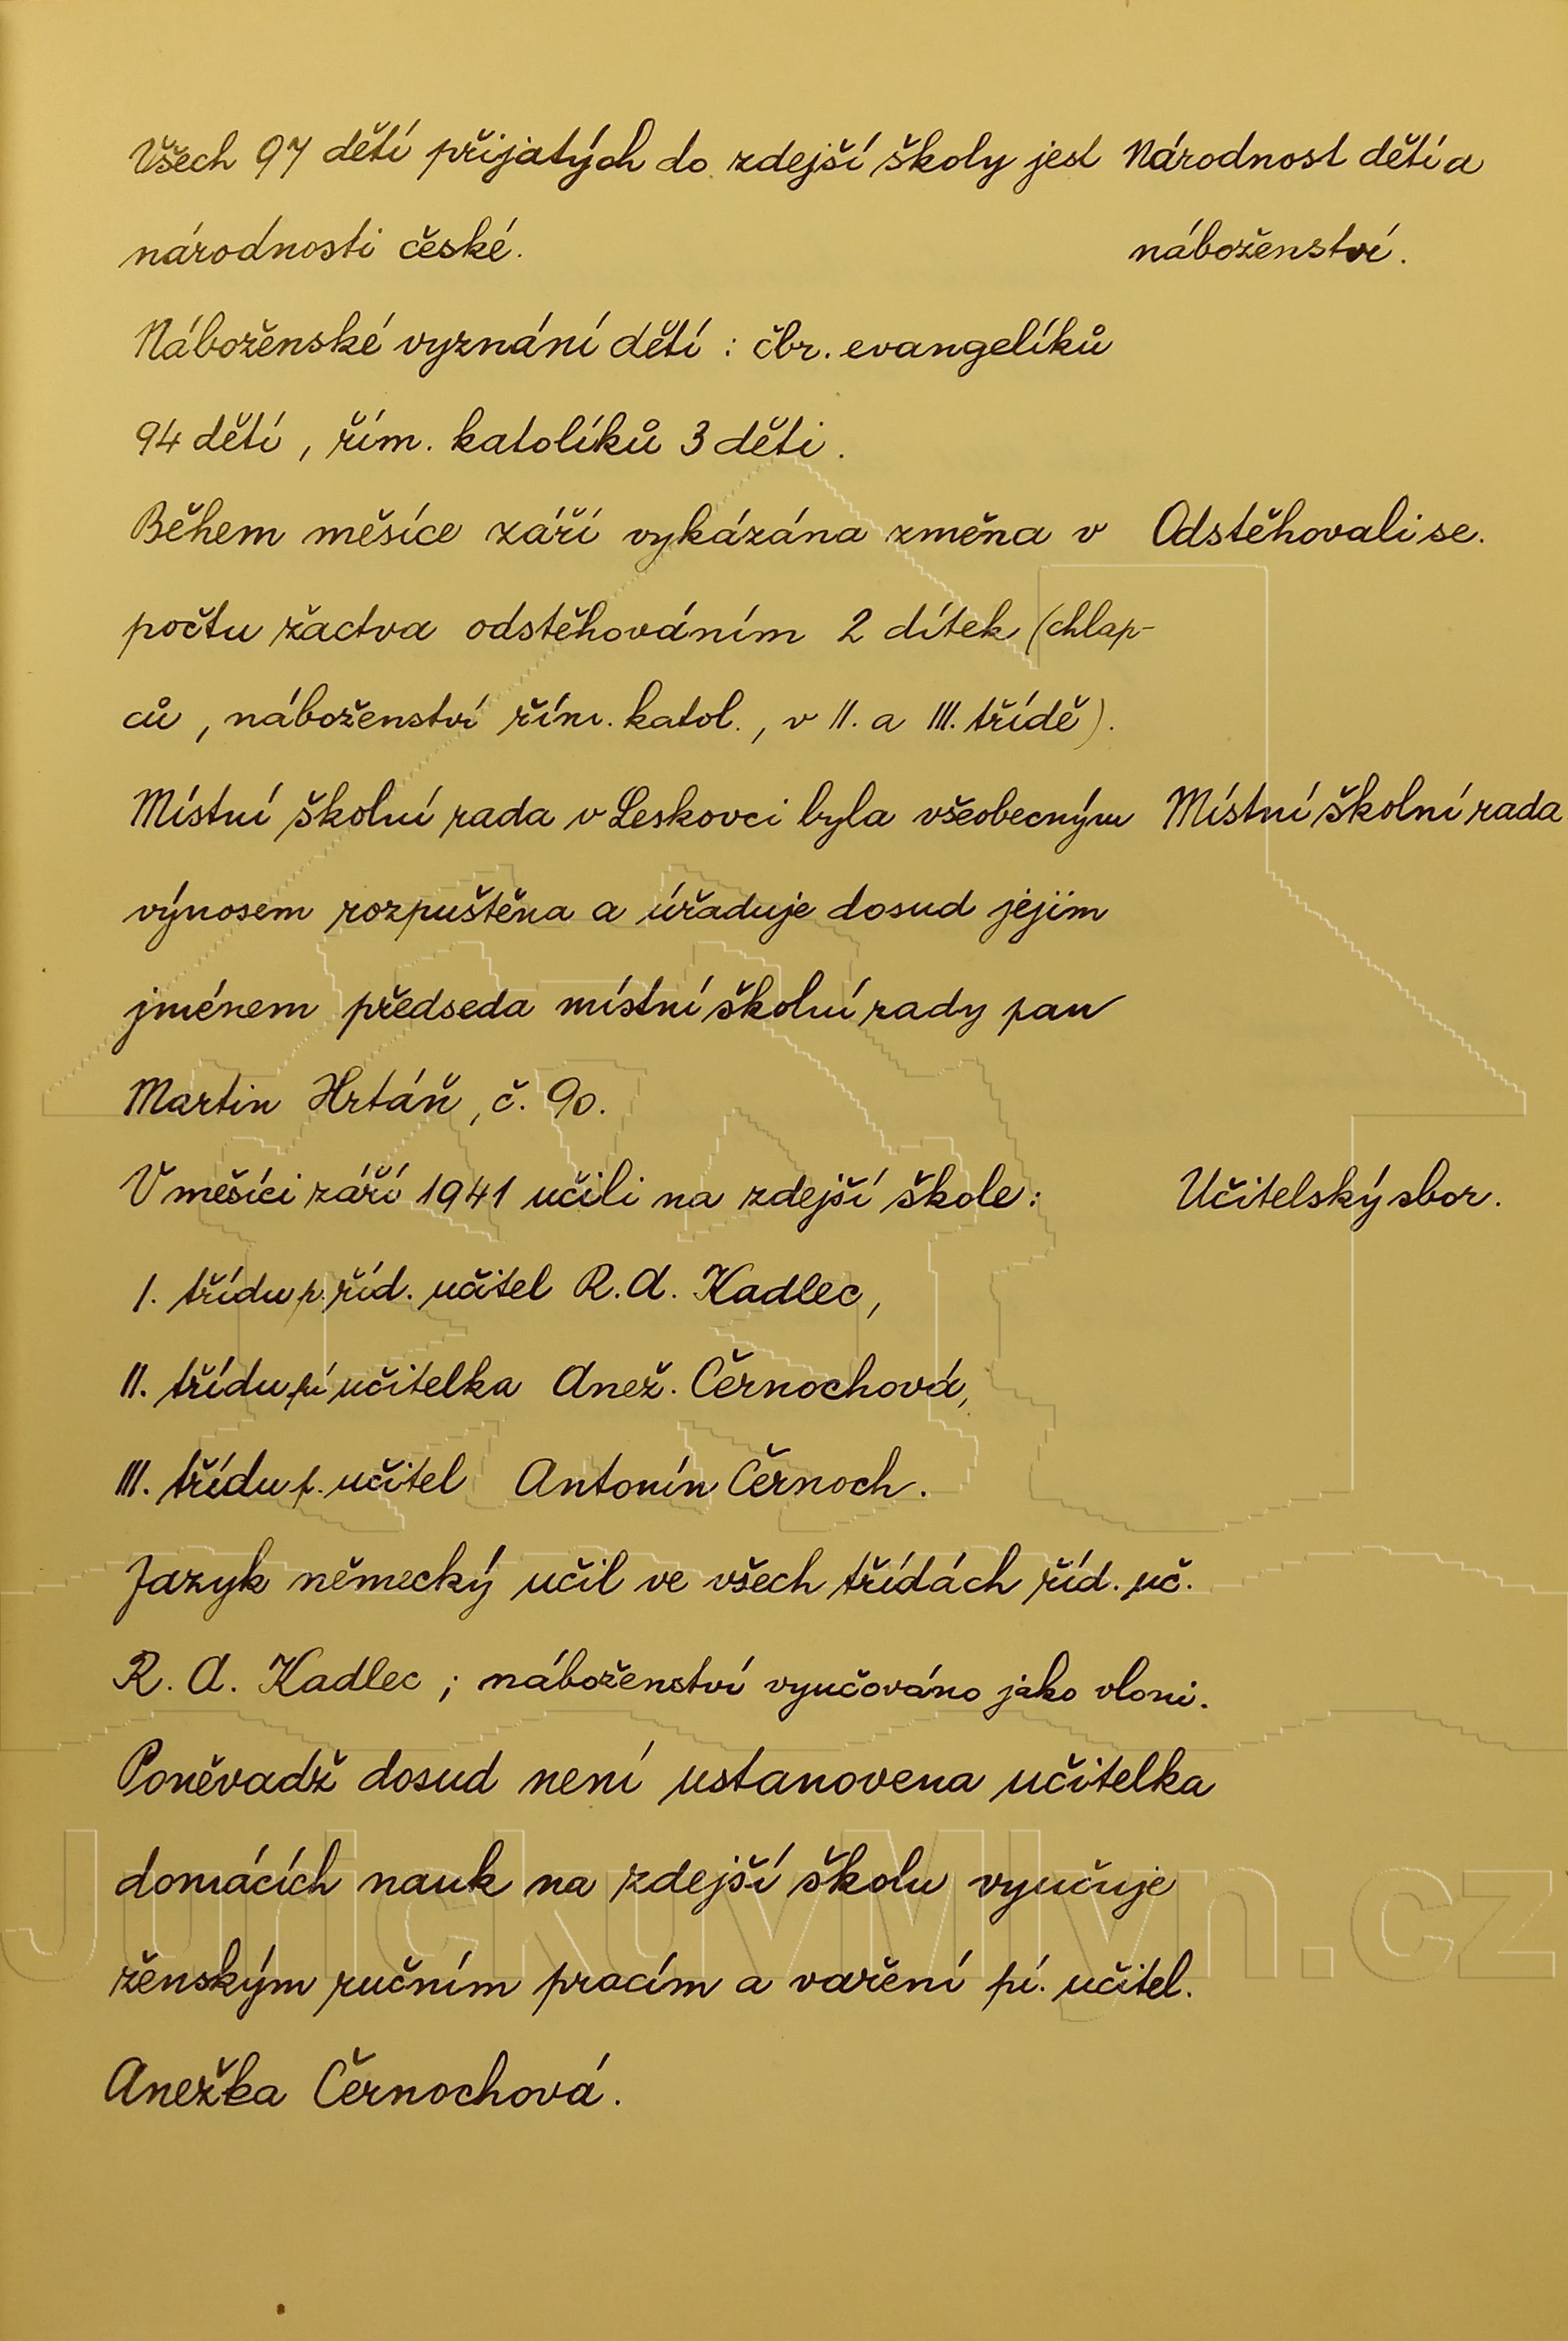 Všech 97 dětí přijatých do zdejší školy jest Národnost dětí a
národnosti české. náboženství.
Náboženské vyznání dětí : čbr. evangelíků
94 dětí , řím. katolíků 3 děti .
Během měsíce září vykázána změna v Odstěhovali se.
počtu žactva odstěhováním 2 dítek (chlap-
ců , náboženství řím. katol. , v II. a III. třídě).
Místní školní rada v Leskovci byla všeobecným Místní školní rada
výnosem rozpuštěna a úřaduje dosud jejím
jménem předseda místní školní rady pan
Martin Hrtáň, č. 90.
V měsíci září 1941 učili na zdejší škole: Učitelský sbor.
I. třídu p. říd. učitel R. A. Kadlec,
II. třídu pí učitelka Anež. Černochová,
III. třídu p. učitel Antonín Černoch.
Jazyk německý učil ve všech třídách říd. uč.
R. A. Kadlec ; náboženství vyučováno jako vloni.
Poněvadž dosud není ustanovena učitelka
domácích nauk na zdejší školu vyučuje
ženským ručním pracím a vaření pí. učitel.
JurickuvMlyn.cz
Anežka Černochová.